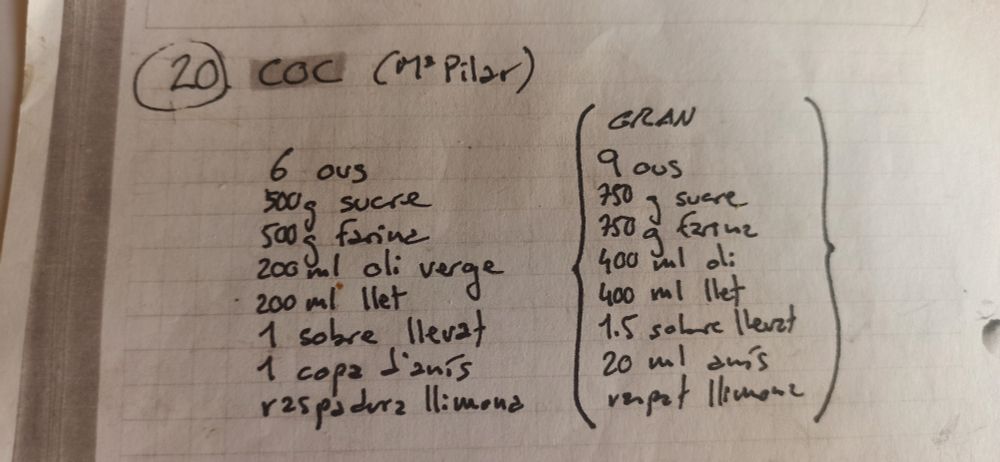 20 COC (Mª Pilar)
6 ous
500g sucre
500g farina
200 ml oli verge
200 ml llet
1 sobre llevat
1 copa d'anís
raspadura llimona
GRAN
9 ous
750 g sucre
750 g farina
400 ml oli
400 ml llet
1.5 sobre llevat
20 ml anís
raspat llimona